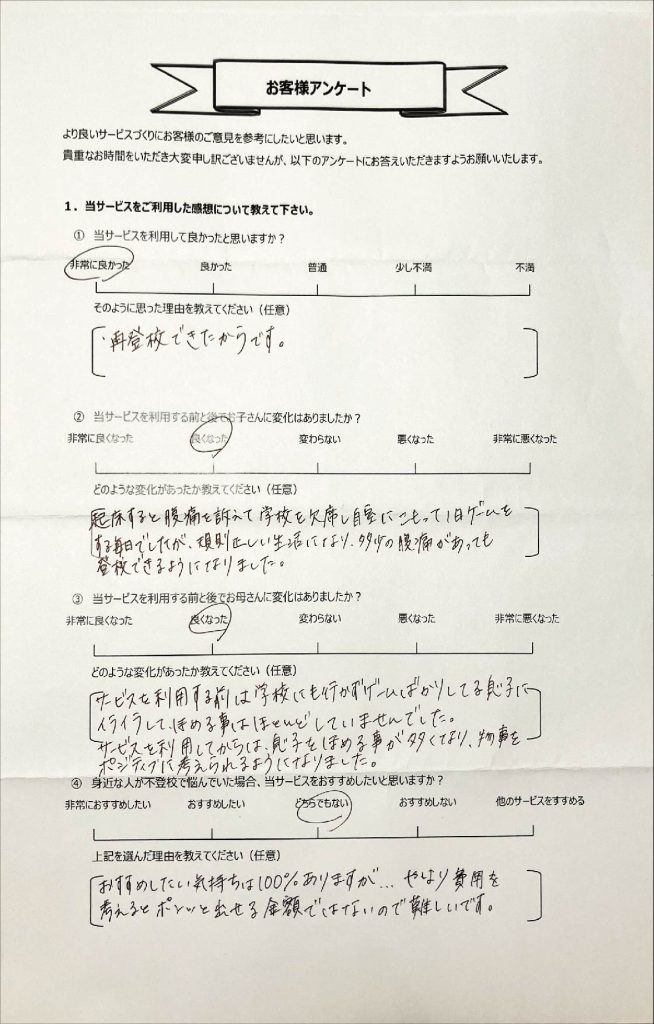 お客様アンケート
より良いサービスづくりにお客様のご意見を参考にしたいと思います。
貴重なお時間をいただき大変申し訳ございませんが、以下のアンケートにお答えいただきますようお願いいたします。
１．当サービスをご利用した感想について教えて下さい。
① 当サービスを利用して良かったと思いますか？
非常に良かった 良かった 普通 少し不満 不満
そのように思った理由を教えてください（任意）
・再登校できたからです。
② 当サービスを利用する前と後でお子さんに変化はありましたか？
非常に良くなった 良くなった 変わらない 悪くなった 非常に悪くなった
どのような変化があったか教えてください（任意）
起床すると腹痛を訴えて学校を欠席し自室にこもって1日ゲームを
する毎日でしたが、規則正しい生活になり、多少の腹痛があっても
登校できるようになりました。
③ 当サービスを利用する前と後でお母さんに変化はありましたか？
非常に良くなった 良くなった 変わらない 悪くなった 非常に悪くなった
どのような変化があったか教えてください（任意）
サービスを利用する前は学校にも行かずゲームばかりしてる息子に
イライラして、ほめる事はほとんどしていませんでした。
サービスを利用してからは、息子をほめる事が多くなり、物事を
ポジティブに考えられるようになりました。
④ 身近な人が不登校で悩んでいた場合、当サービスをおすすめしたいと思いますか？
非常におすすめしたい おすすめしたい どちらでもない おすすめしない 他のサービスをすすめる
上記を選んだ理由を教えてください（任意）
おすすめしたい気持ちは100%ありますが… やはり費用を
考えるとポンッと出せる金額ではないので難しいです。